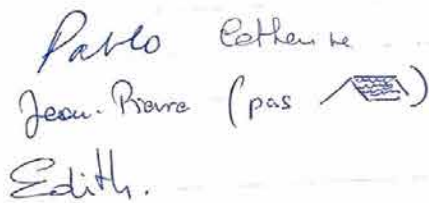 Pablo Catherine
Jean-Pierre (pas )
Edith.